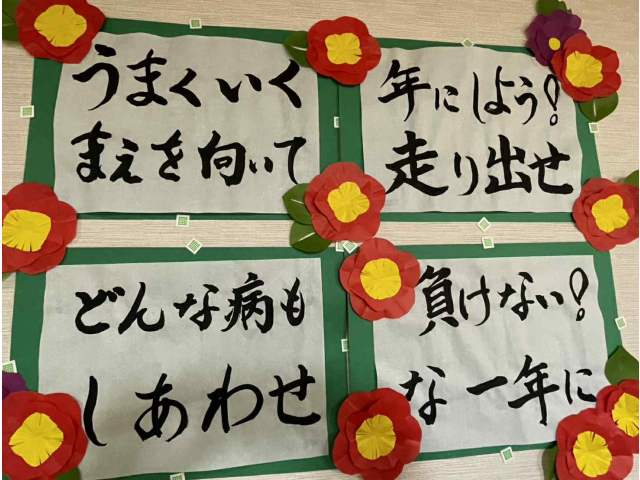 うまくいく年にしよう!
まえを向いて走り出せ
どんな病も負けない!
しあわせな一年に